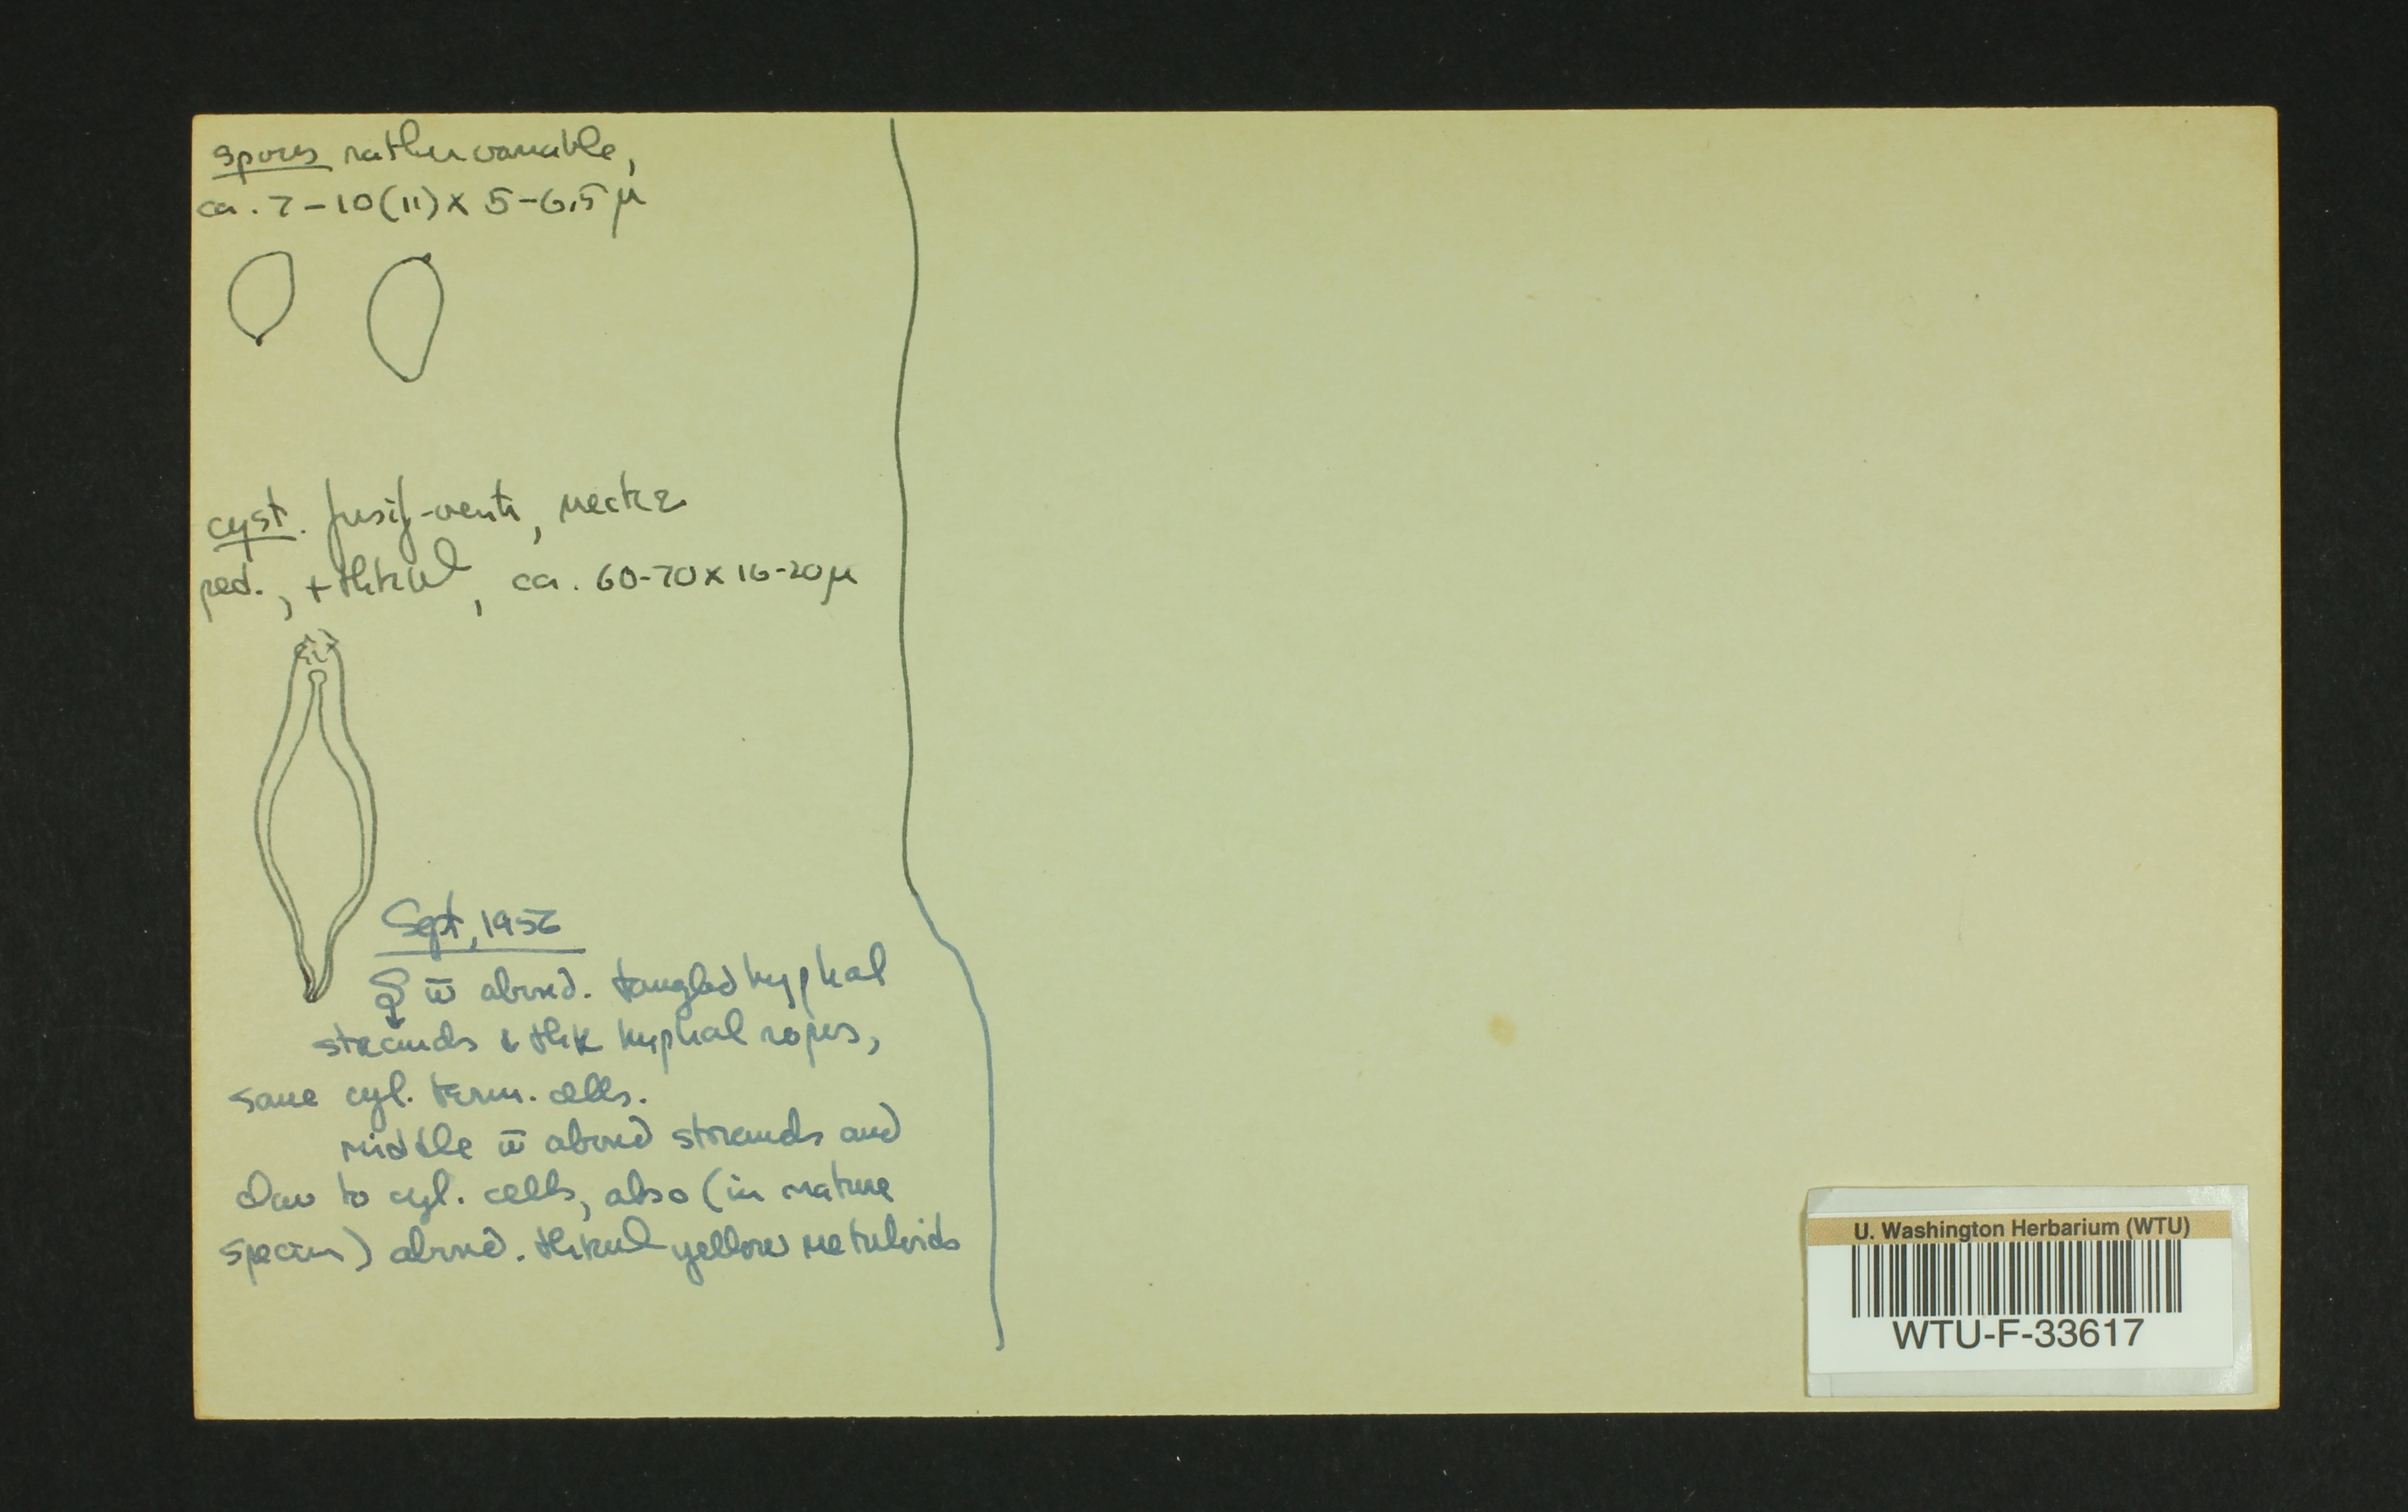 spores rather variable,
ca. 7-10(11) x 5-6.5 µ
cyst. fusif-ventr, neck &
ped., + thkwl, ca. 60-70 x 16-20 µ
Sept, 1956
w̄ abund. tangled hyphal
strands & thk hyphal ropes,
some cyl. term. cells.
middle w̄ abund strands and
clav to cyl. cells, also (in mature
specim) abund. thkwl yellow metuloids
U. Washington Herbarium (WTU)
WTU-F-33617